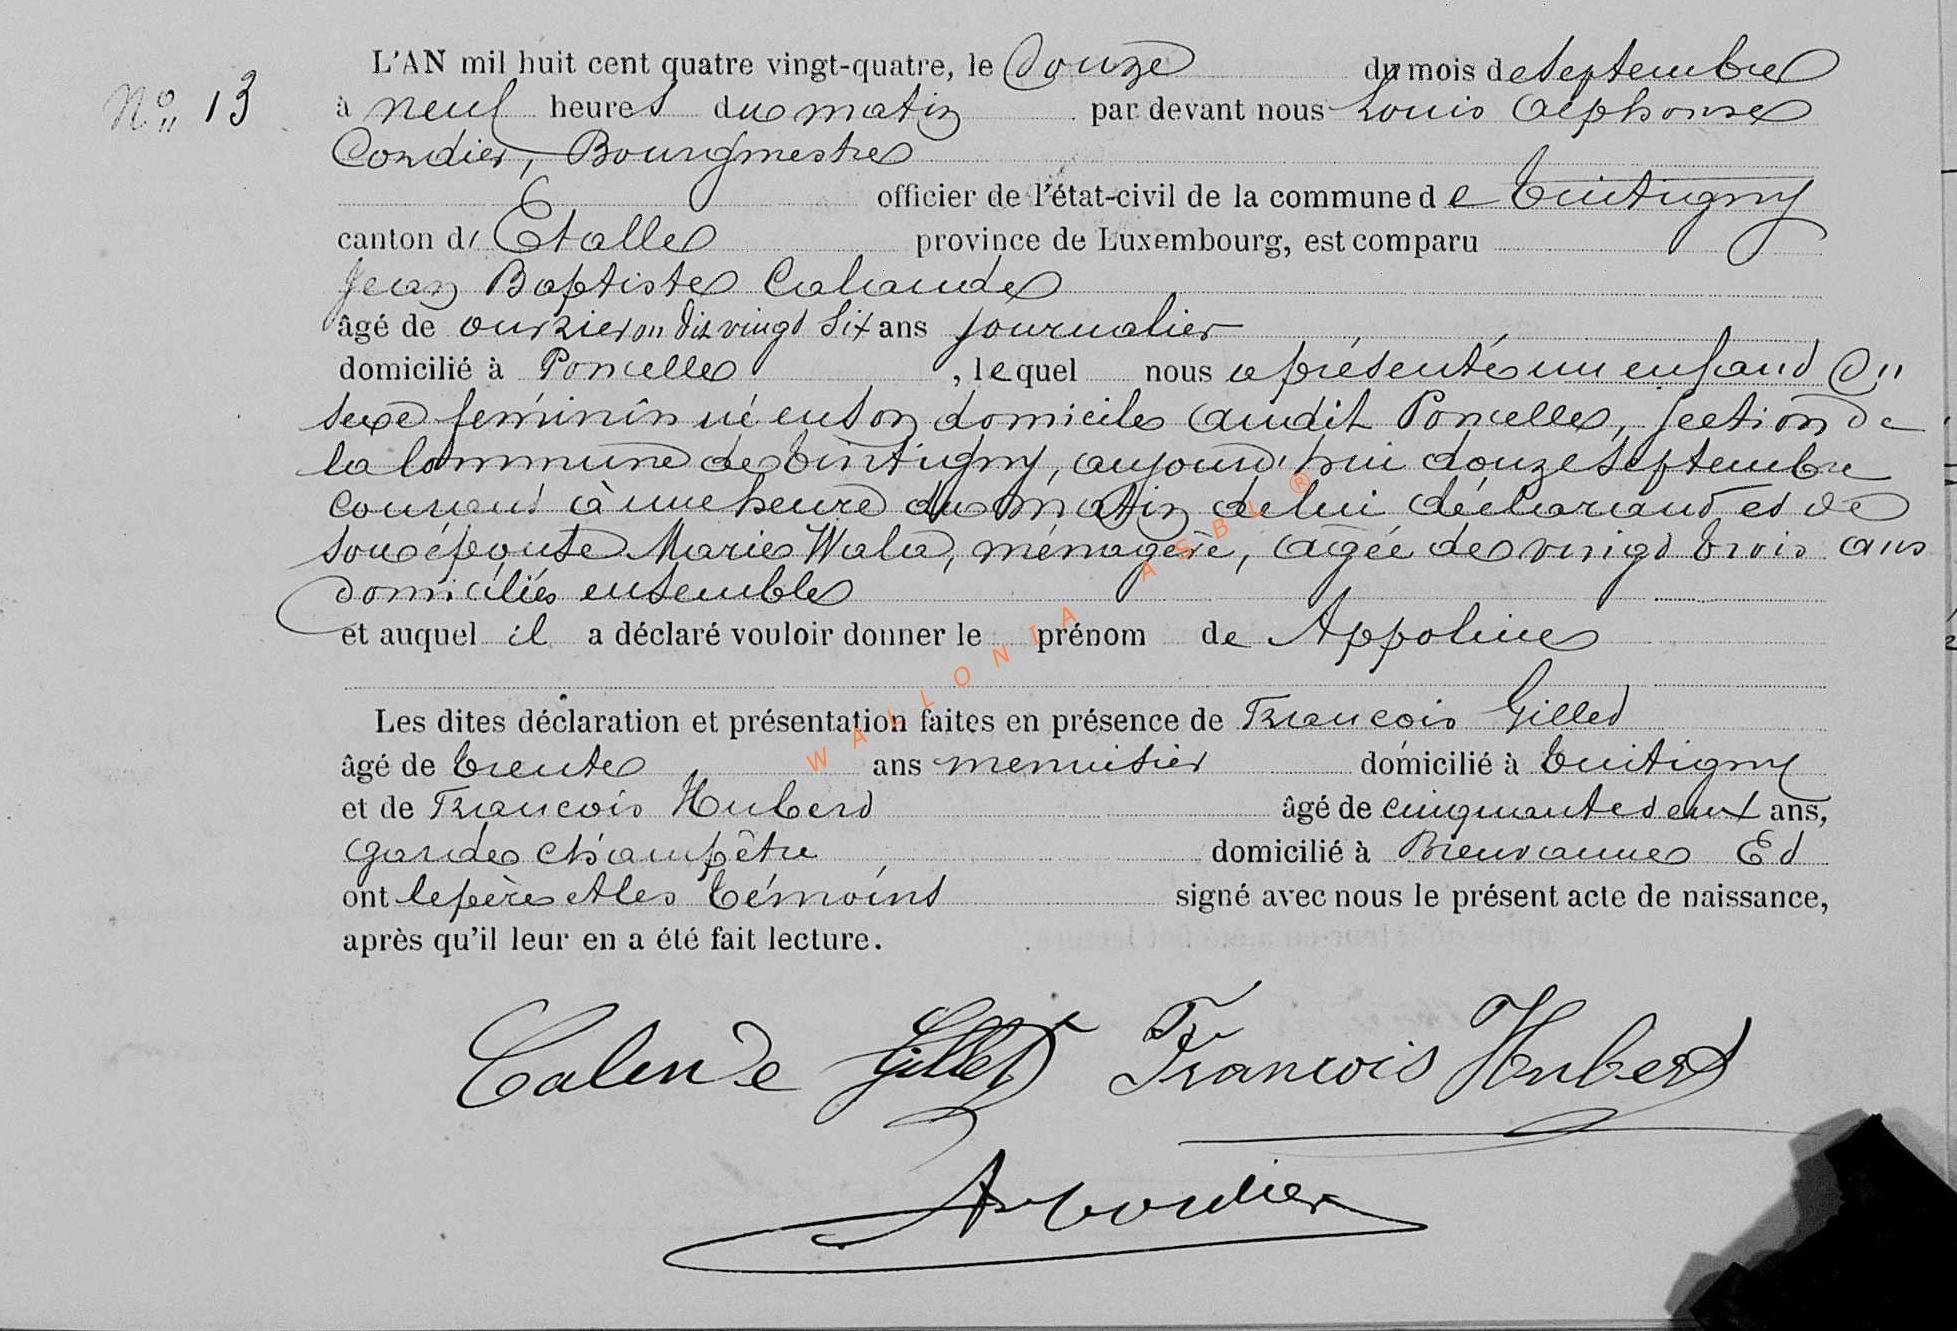 L'AN mil huit cent quatre vingt-quatre, le Douze du mois de Septembre
N° 13
à neuf heures du matin par devant nous Louis Alphonse
Cordier, Bourgmestre
officier de l'état-civil de la commune de Tintigny
canton d' Etalle province de Luxembourg, est comparu
Jean Baptiste Calande
âgé de vingt Six ans journalier
domicilié à Poncelle, lequel nous a présenté un enfant Du
sexe féminin né en son domicile audit Poncelle, section de
la Commune de Tintigny, aujourd'hui douze Septembre
courant à une heure du matin de lui déclarant et de
son épouse Marie Wala, ménagère, agée de vingt trois ans
domiciliés ensemble
et auquel il a déclaré vouloir donner le prénom de Appoline
Les dites déclaration et présentation faites en présence de François Gillet
âgé de trente ans menuisier domicilié à Tintigny
et de François Hubert âgé de cinquante deux ans,
garde champêtre domicilié à Breuvanne Et
ont le père et les témoins signé avec nous le présent acte de naissance,
après qu'il leur en a été fait lecture.
Calende Gillet François Hubert
A Cordier
WALLONIA ASBL ®